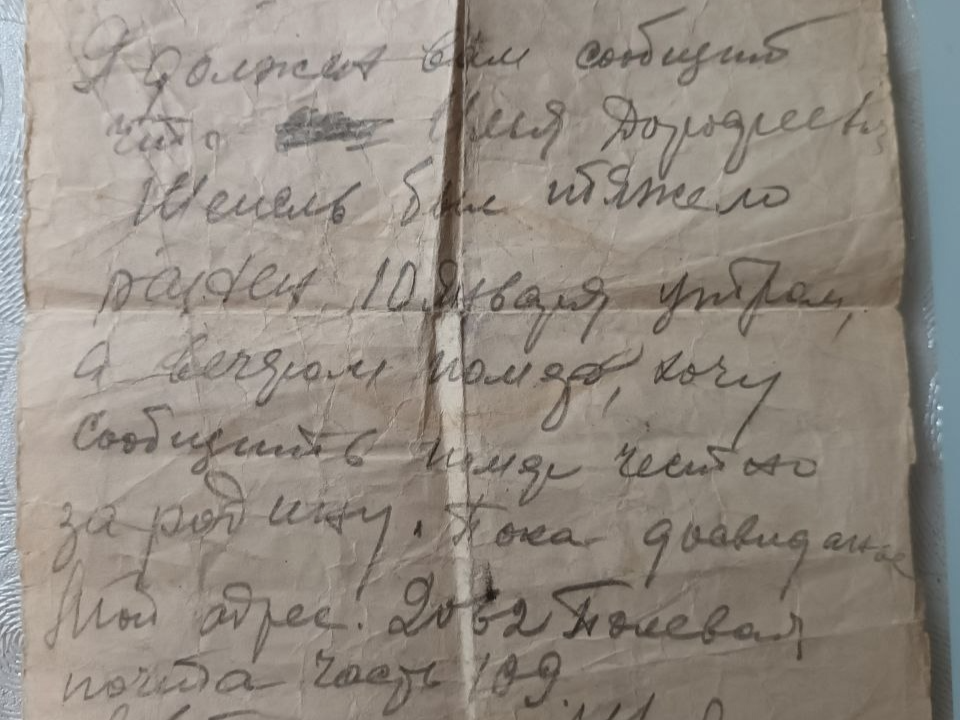 Я должен вам сообщить
что Илья Дорофеевич
Шмель был тяжело
ранен 10 Января утром,
а вечером помер, хочу
сообщить помер честно
за родину. Пока досвидание
Мой адрес. 2062 Полевая
почта часть 199